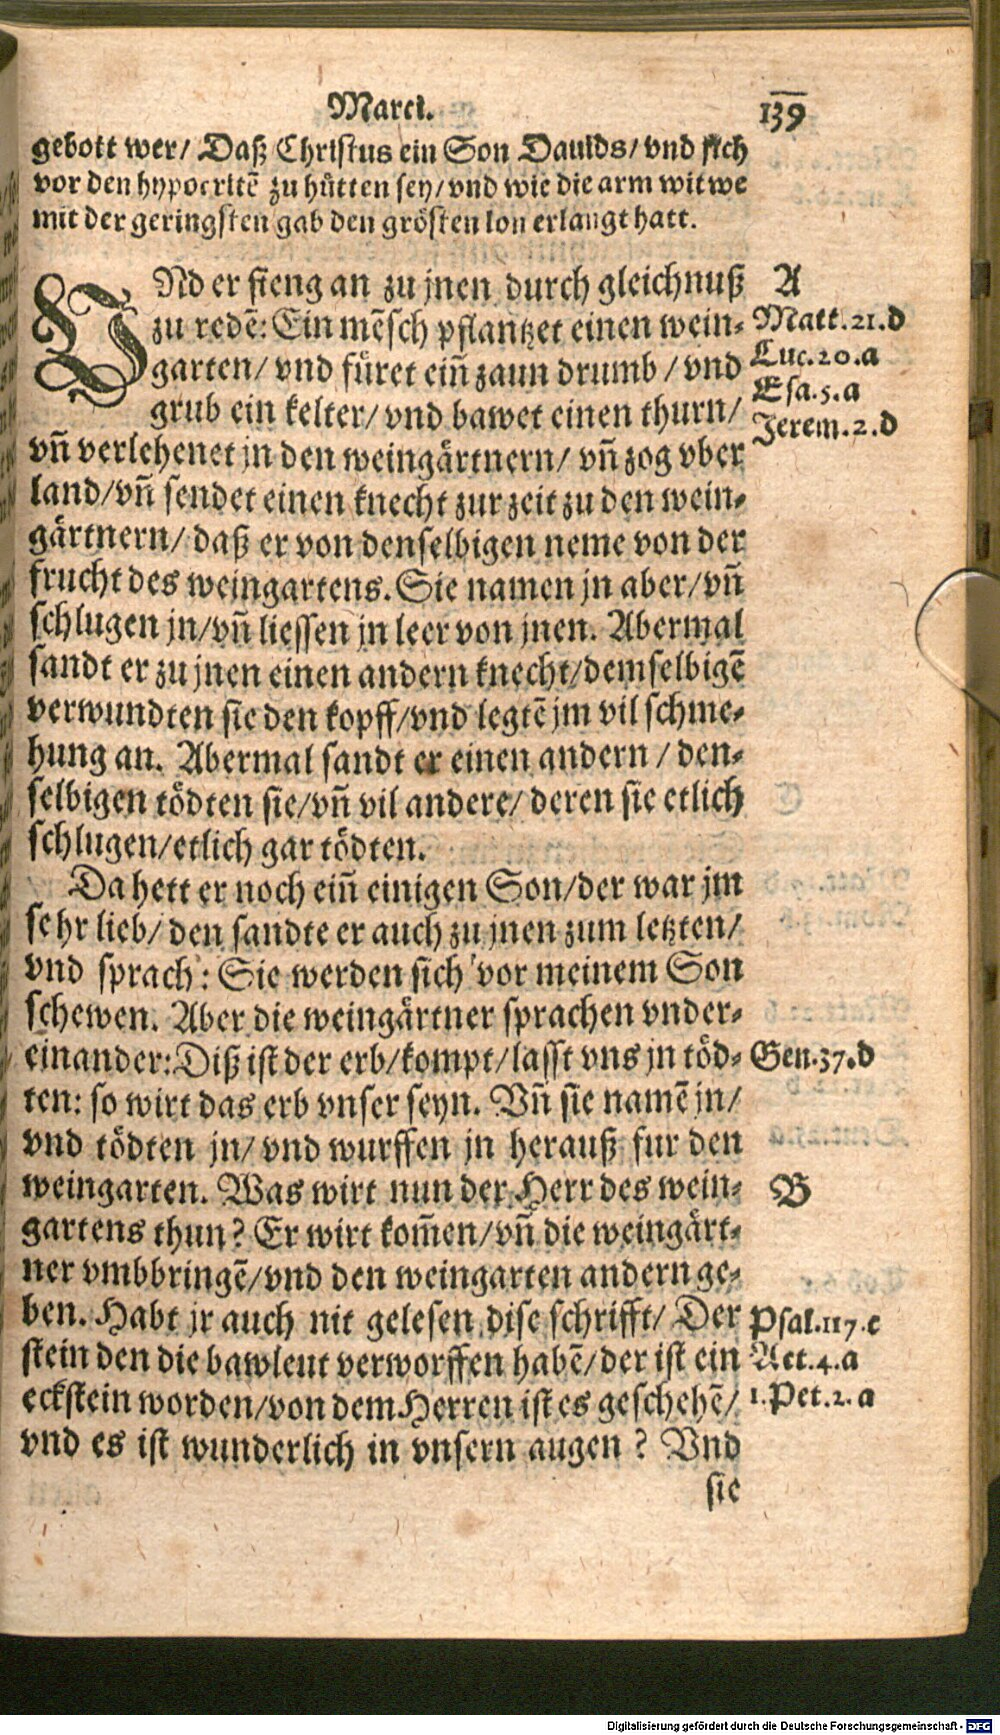 Marci.
139
gebott wer/ Daß Christus ein Son Dauids/ vnd sich
vor den hypocritẽ zu hůtten sey/ vnd wie die arm witwe
mit der geringsten gab den grösten lon erlangt hatt.
VNd er fieng an zu jnen durch gleichnuß
zu redẽ: Ein mẽsch pflantzet einen wein-
garten/ vnd füret eiñ zaun drumb / vnd
grub ein kelter/ vnd bawet einen thurn/
vñ verlehenet jn den weingärtnern/ vñ zog vber
land/ vñ sendet einen knecht zur zeit zu den wein-
gärtnern/ daß er von denselbigen neme von der
frucht des weingartens. Sie namen jn aber/ vñ
schlugen jn/ vñ liessen jn leer von jnen. Abermal
sandt er zu jnen einen andern knecht/ demselbigẽ
verwundten sie den kopff/ vnd legtẽ jm vil schme-
hung an. Abermal sandt er einen andern / den-
selbigen tödten sie/ vñ vil andere/ deren sie etlich
schlugen/ etlich gar tödten.
Da hett er noch eiñ einigen Son/ der war jm
sehr lieb/ den sandte er auch zu jnen zum letzten/
vnd sprach: Sie werden sich vor meinem Son
schewen. Aber die weingärtner sprachen vnder-
einander: Diß ist der erb/ kompt/ lasst vns jn töd-
ten: so wirt das erb vnser seyn. Vñ sie namẽ jn/
vnd tödten jn/ vnd wurffen jn herauß fur den
weingarten. Was wirt nun der Herr des wein-
gartens thun? Er wirt kom̃en/ vñ die weingärt-
ner vmbbringẽ/ vnd den weingarten andern ge-
ben. Habt jr auch nit gelesen dise schrifft/ Der
stein den die bawleut verworffen habẽ/ der ist ein
eckstein worden/ von dem Herren ist es geschehẽ/
vnd es ist wunderlich in vnsern augen ? Vnd
sie
A
Matt.21.d
Luc.20.a
Esa.5.a
Jerem.2.d
Gen.37.d
B
Psal.117.c
Act.4.a
1.Pet.2.a
Digitalisierung gefördert durch die Deutsche Forschungsgemeinschaft - DFG